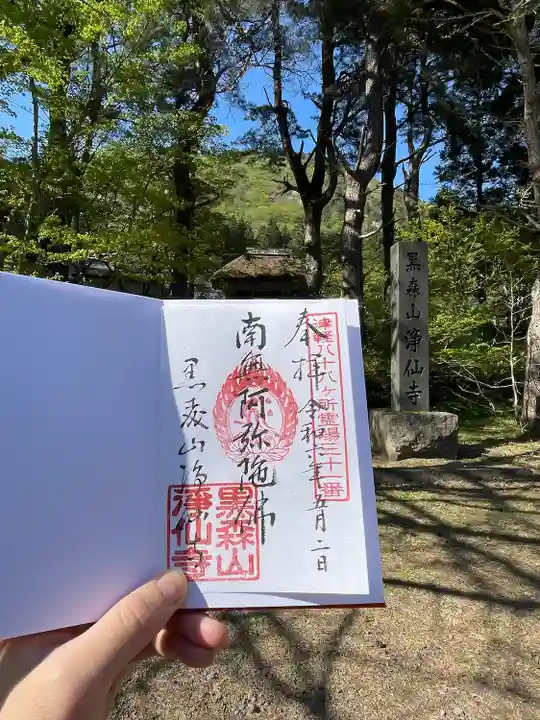 黒森山 浄仙寺
津軽八十八ヶ所霊場三十一番
奉拝 令和六年五月二日
南無阿弥陀佛
黒森山浄仙寺
黒森山
浄仙寺